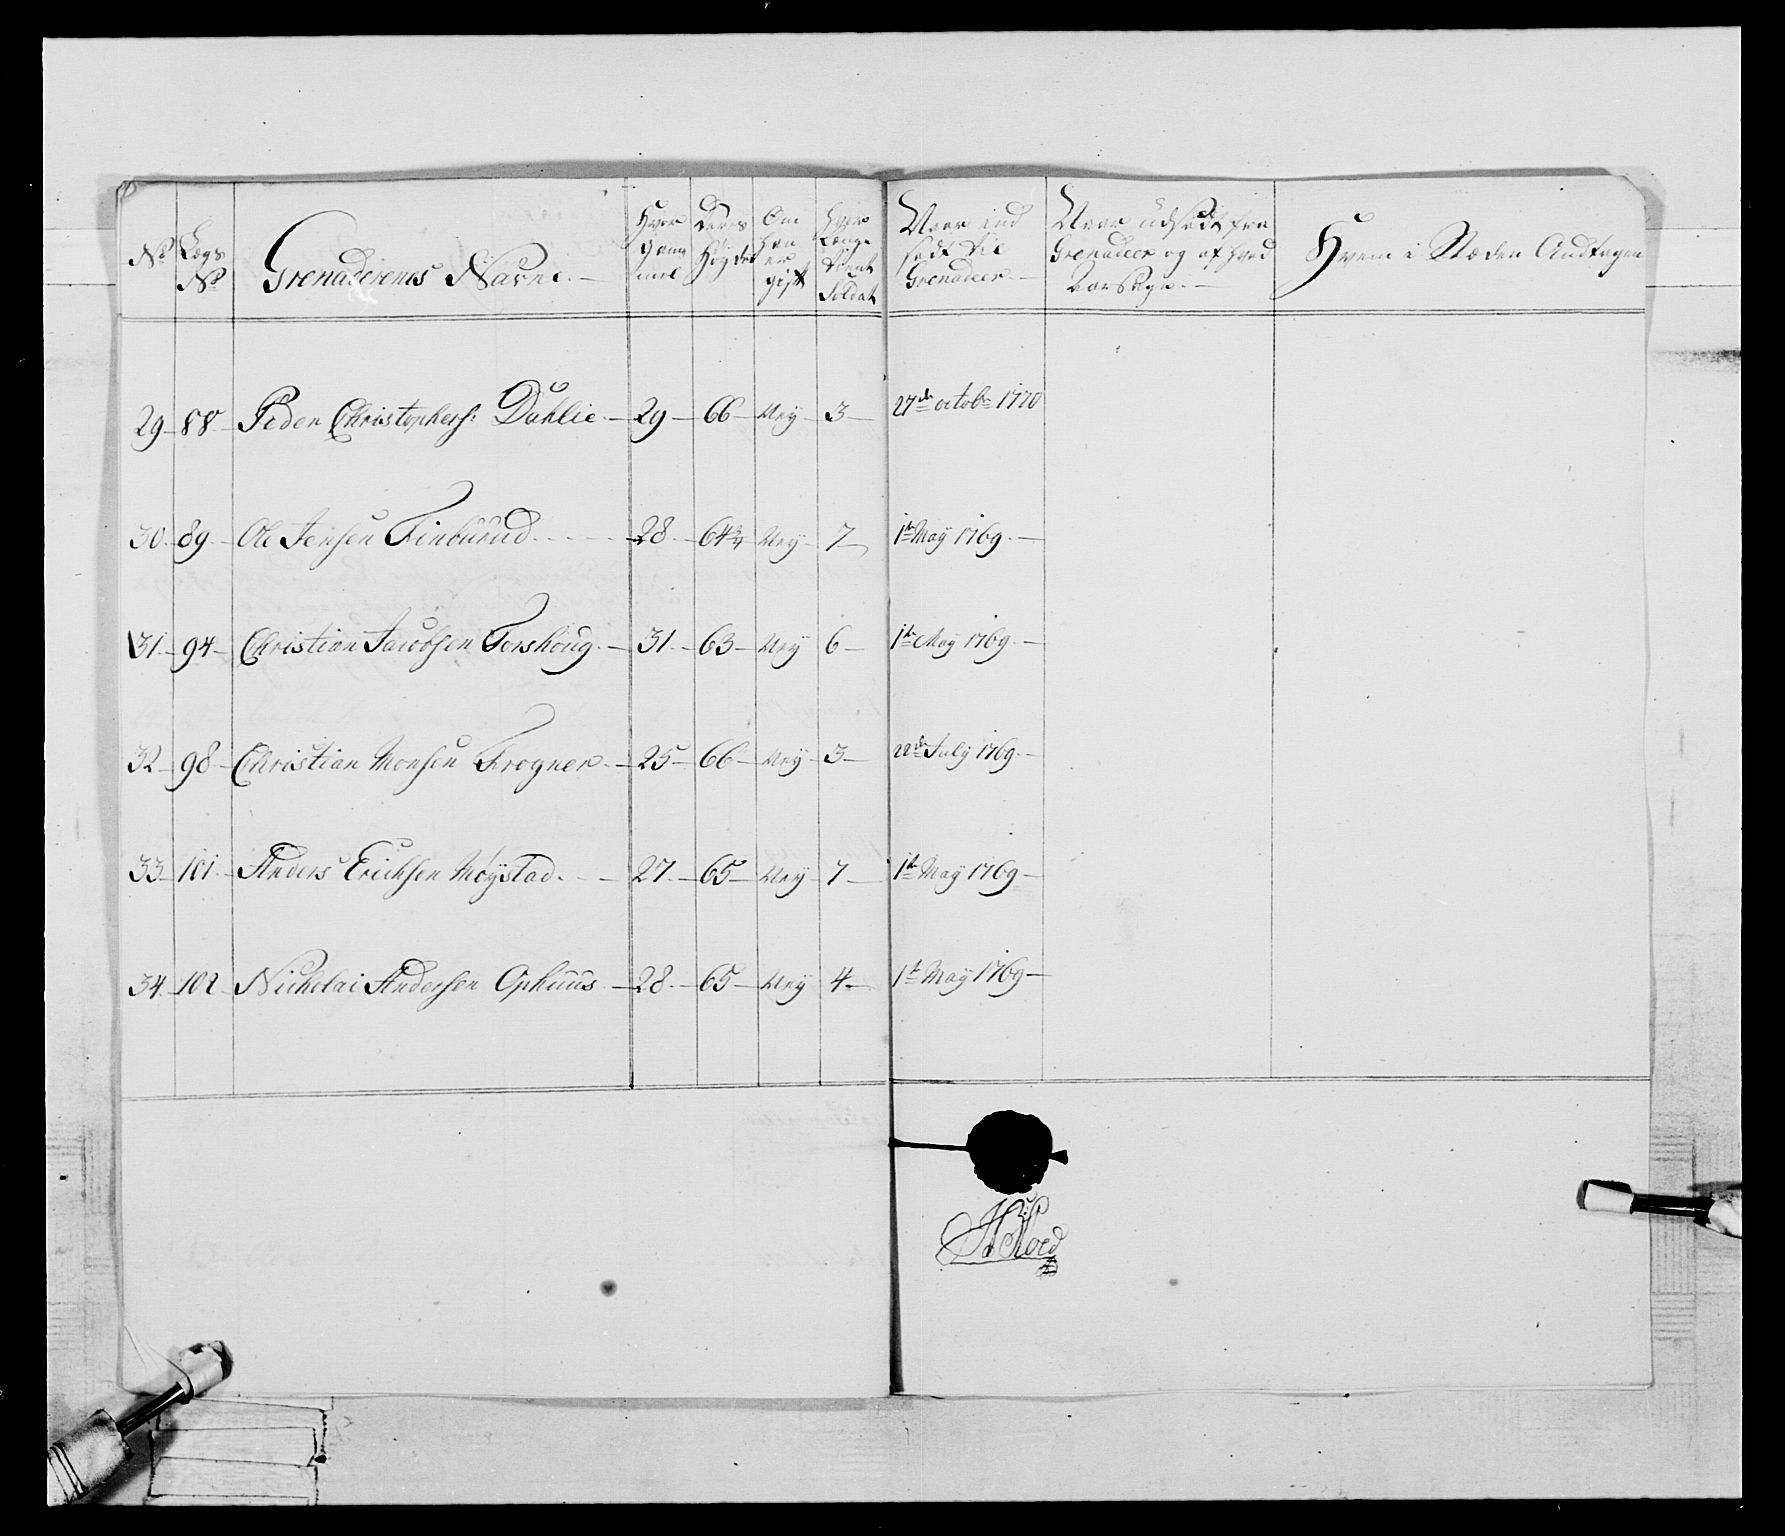 No Lægs No Grenaderenes Navne. Hvor gammel Deres Høyde Om han er gift Hvor Længe tient Soldat Naar ind sadt til Grenadeer Naar udsadt fra Grenadeer og af hvad Aarsage. Hvem i Stæden Andtagen
29 88 Peder Christophers: Dahlie 29 66 Ney 3 27de octobr 1770
30 89 Ole Jensen Finburud 28 64¾ Ney 7 1te May 1769
31 94 Christian Jacobsen Torshoug 31 63 Ney 6 1te May 1769
32 98 Christian Monsen Frogner 25 66 Ney 3 22de July 1769
33 101 Anders Erichsen Møystad 27 65 Ney 7 1te May 1769
34 102 Nicholai Andersen Ophuus 28 65 Ney 4 1te May 1769